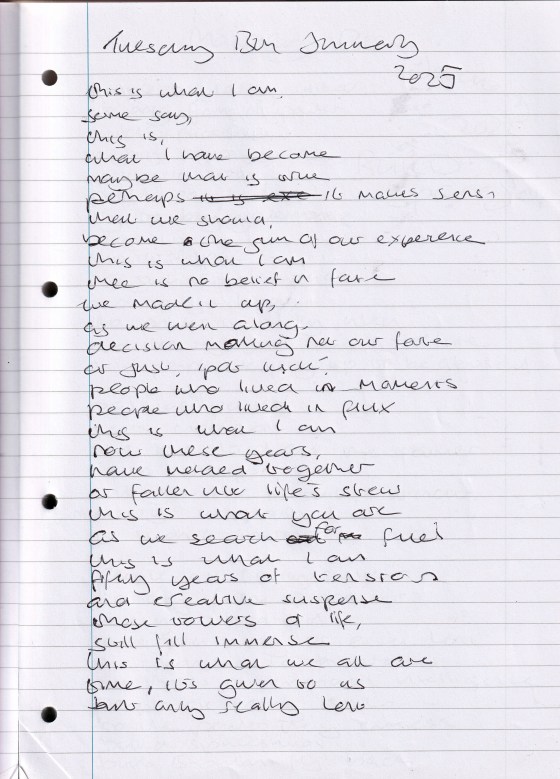 Tuesday January
2025
this is what I am.
some say,
this is,
what I have become
maybe that is true
perhaps it is it makes sense
that we should,
become the sum of our experience
this is what I am
there is no belief in fate
we made it up,
as we went along.
decision making not our forte
or just,
people who lived in moments
people who lived in flux
this is what I am
now these years,
have welded together
or fallen into life's stew
this is what you are
as we search for fuel
this is what I am
fifty years of tension
and creative suspense
those towers of life,
still immerse
this is what we all are
time, it's given to us
but only really lent